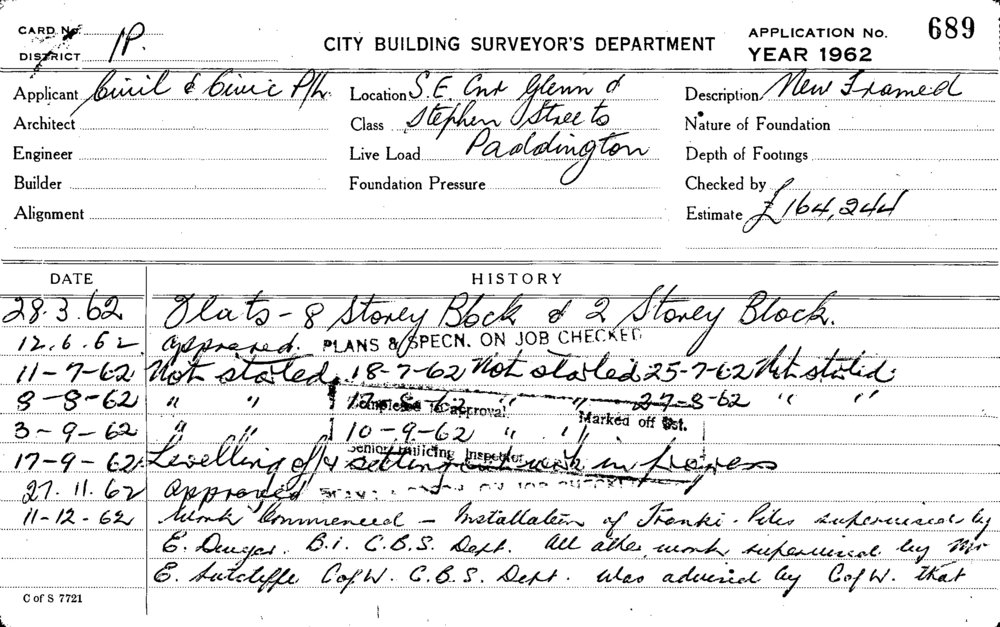 CARD No.
DISTRICT 1P.
CITY BUILDING SURVEYOR'S DEPARTMENT
APPLICATION No. 689
YEAR 1962
Applicant Civil & Civic P/L.
Location S.E. Cnr Glenn &
Description New Framed
Architect
Class Stephen Streets
Nature of Foundation
Engineer
Live Load Paddington
Depth of Footings
Builder
Foundation Pressure
Checked by
Alignment
Estimate £164,244
DATE HISTORY
28.3.62 Flats - 8 Storey Block & 2 Storey Block.
12.6.62 approved. PLANS & SPECN. ON JOB CHECKED
11-7-62 Not started. 18-7-62 Not started 25-7-62 Not started.
8-8-62 " " 17-8-62 " " 27-8-62 " "
Completed to approval Marked off Dst.
3-9-62 " " 10-9-62 " "
Senior Building Inspector
17-9-62 Levelling off & setting out work in progress
27.11.62 approved ON JOB
11-12-62 Work Commenced - Installation of Franki-Piles supervised by
E. B.I. C.B.S. Dept. All other work supervised by Mr
E. Sutcliffe C of W. C.B.S. Dept. Was advised by C of W. that
C of S 7721